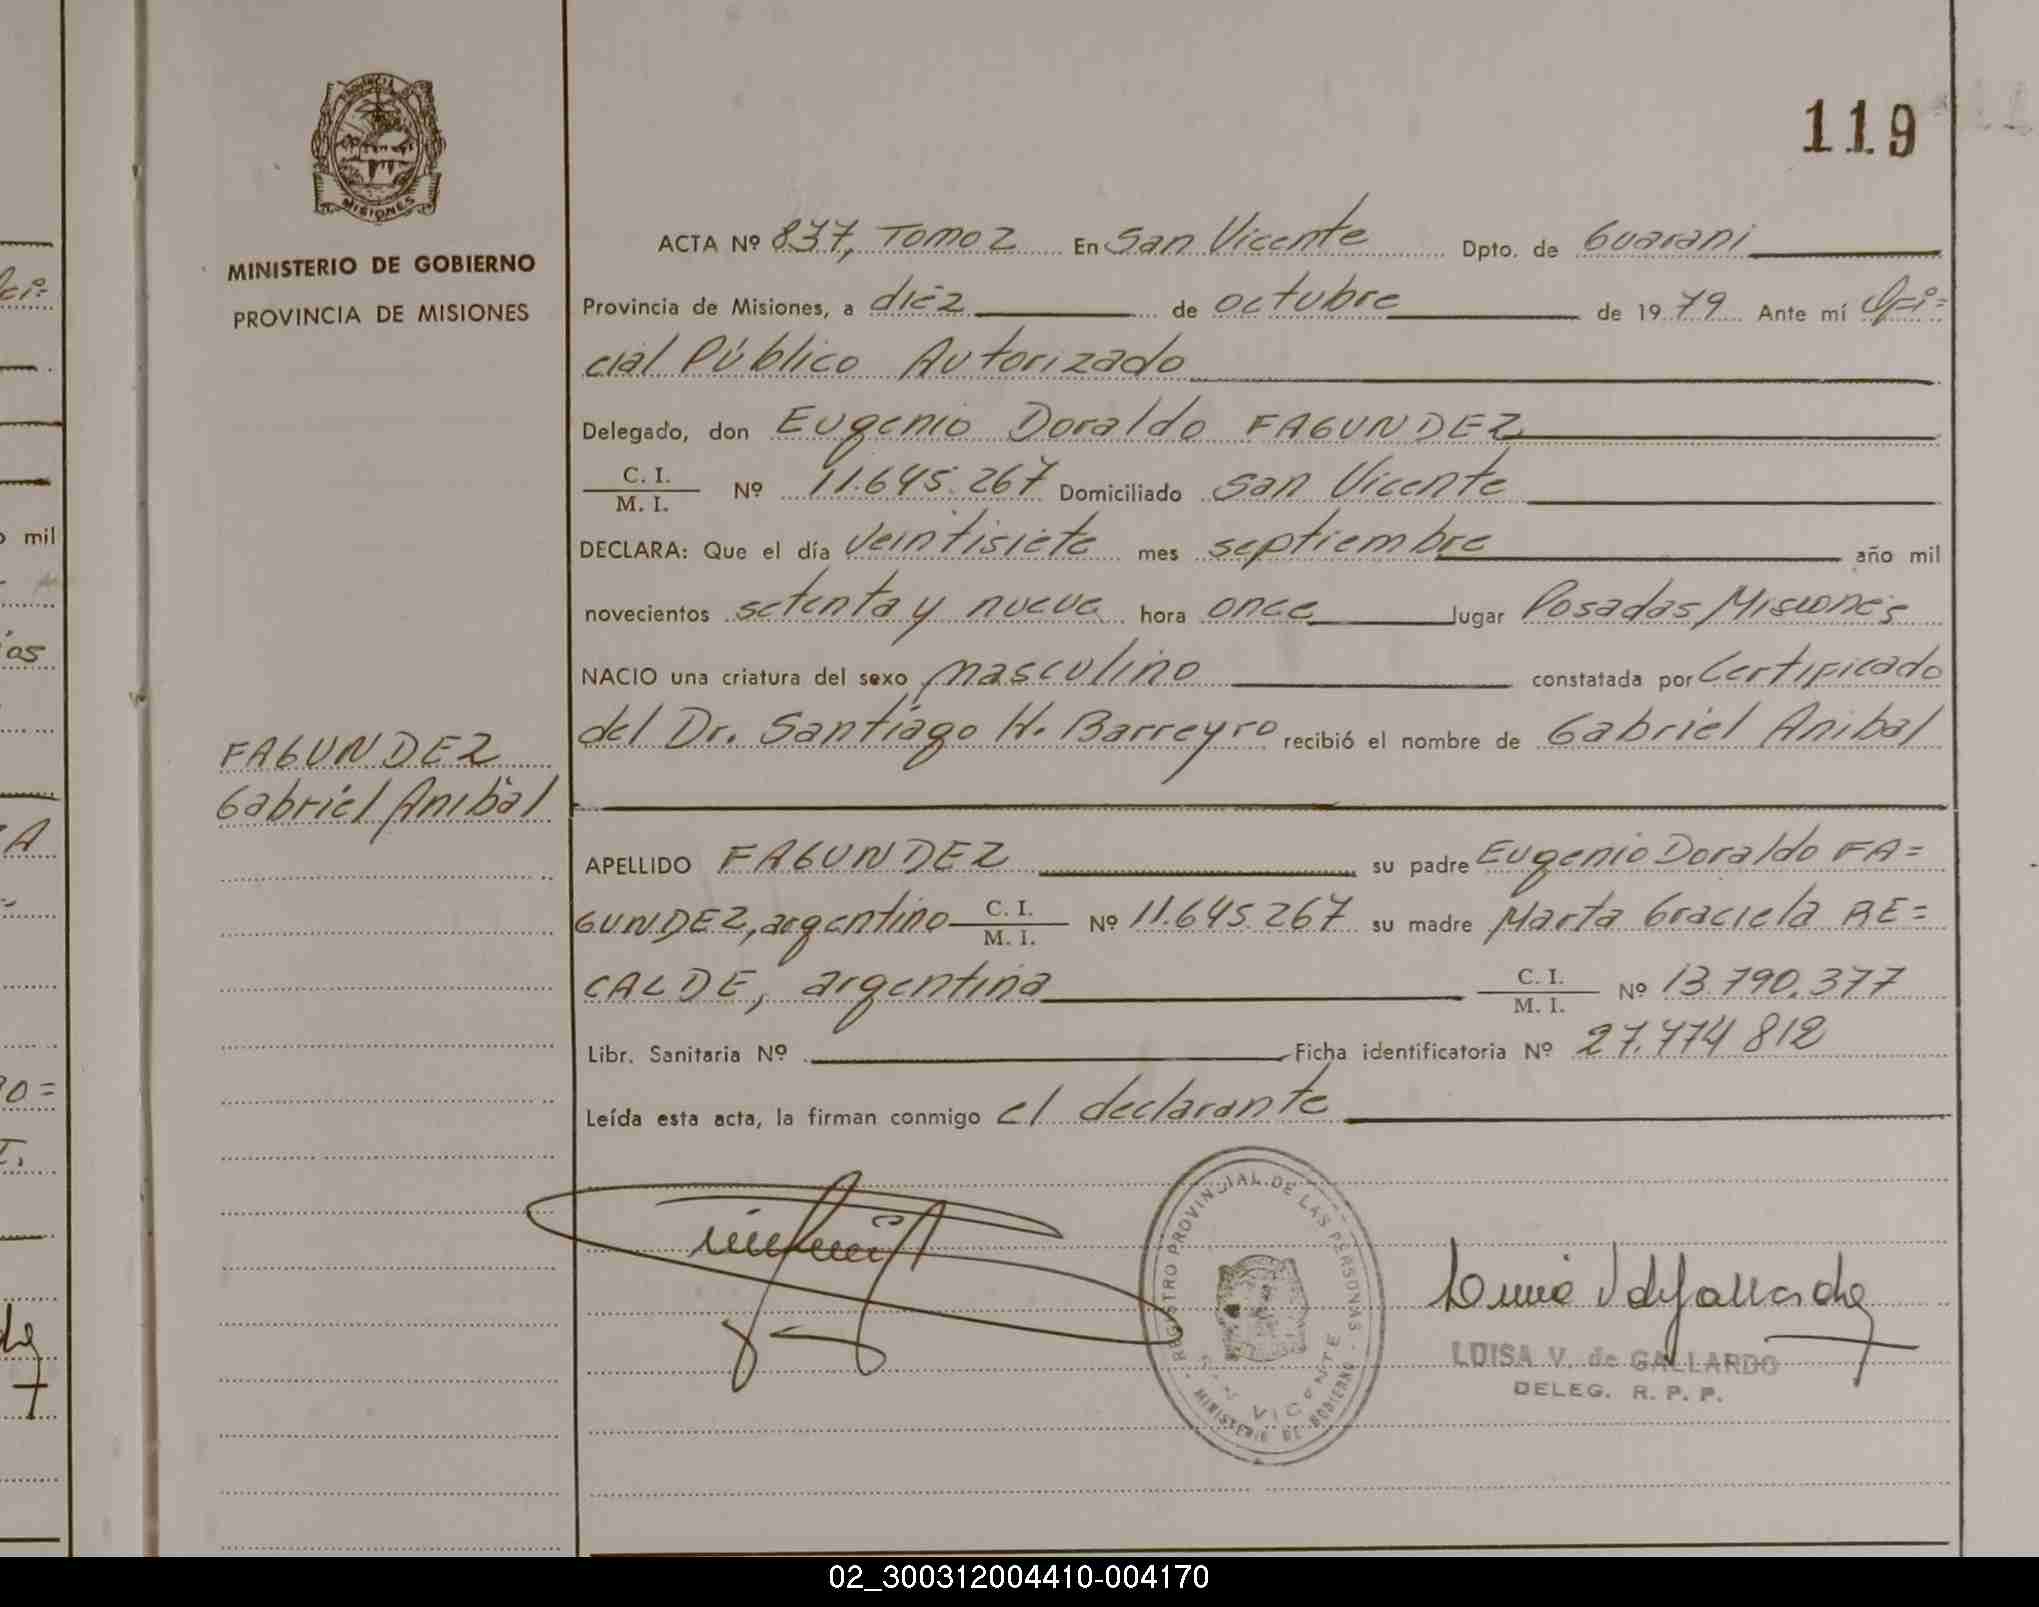 119
PROVINCIA DE
MISIONES
MINISTERIO DE GOBIERNO
PROVINCIA DE MISIONES
FAGUNDEZ
Gabriel Anibal
ACTA Nº 837, Tomo 2 En San Vicente Dpto. de Guarani
Provincia de Misiones, a diez de octubre de 1979 Ante mí Ofi=
cial Público Autorizado
Delegado, don Eugenio Doraldo FAGUNDEZ
C. I.
M. I. Nº 11.645.267 Domiciliado San Vicente
DECLARA: Que el día veintisiete mes septiembre año mil
novecientos setenta y nueve hora once lugar Posadas Misiones
NACIO una criatura del sexo masculino constatada por Certificado
del Dr. Santiago H. Barreyro recibió el nombre de Gabriel Anibal
APELLIDO FAGUNDEZ su padre Eugenio Doraldo FA=
GUNDEZ, argentino C. I. M. I. Nº 11.645.267 su madre Marta Graciela RE=
CALDE, argentina C. I. M. I. Nº 13.790.377
Libr. Sanitaria Nº Ficha identificatoria Nº 27.774 812
Leída esta acta, la firman conmigo el declarante
REGISTRO PROVINCIAL DE LAS PERSONAS
SAN VICENTE
MINISTERIO DE GOBIERNO
LUISA V. de GALLARDO
DELEG. R. P. P.
02_300312004410-004170